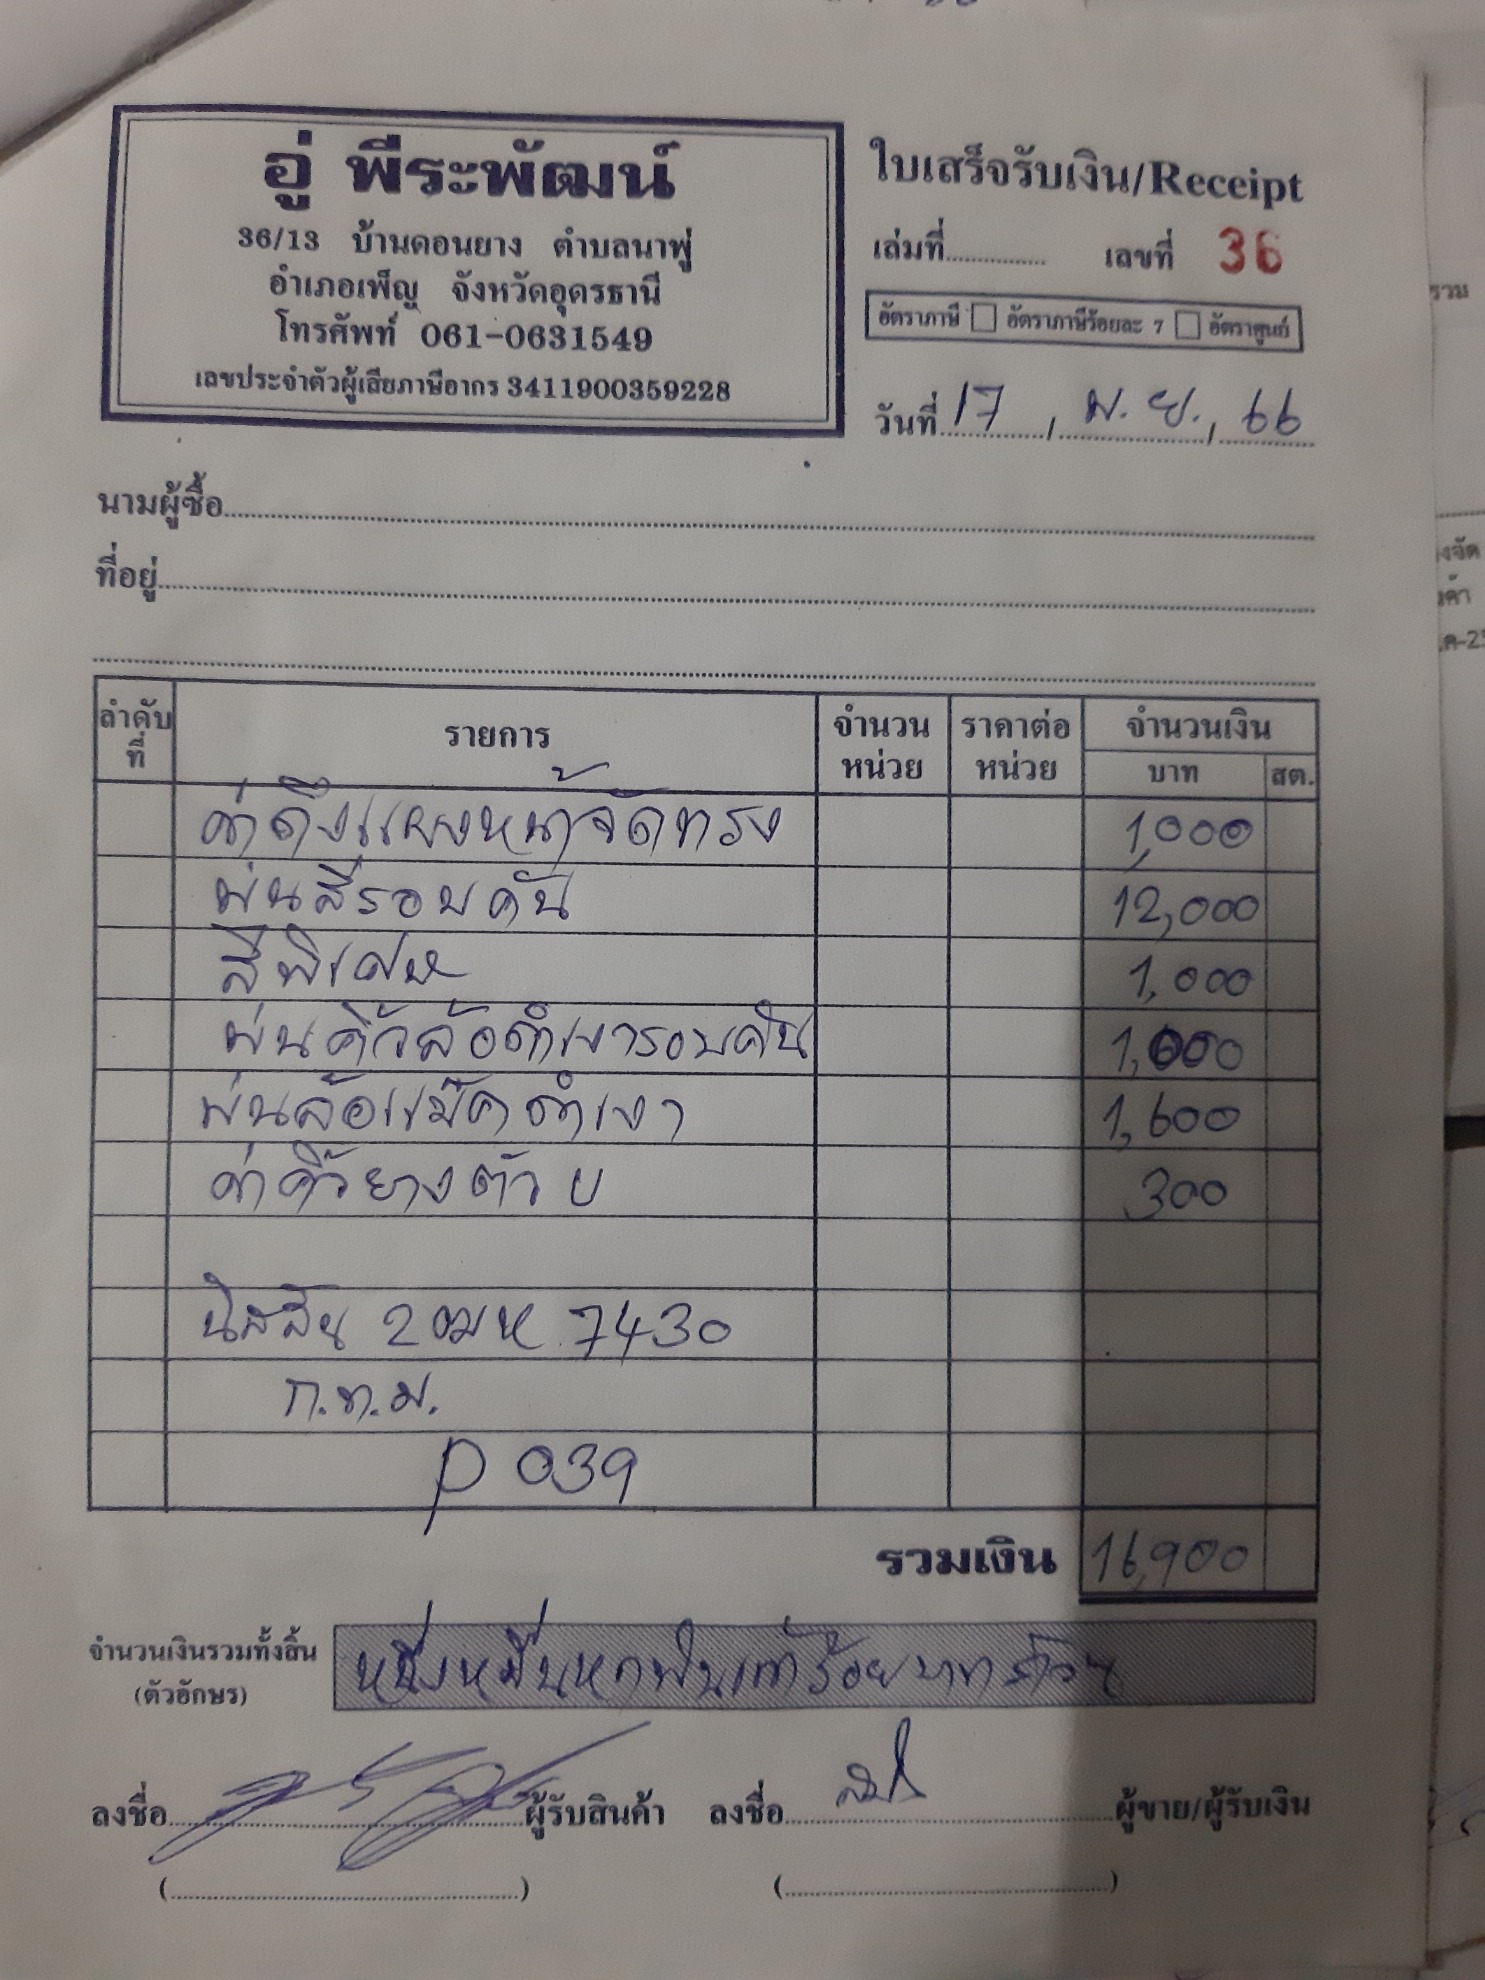 อู่ พีระพัฒน์
36/13 บ้านดอนยาง ตำบลนาพู่
อำเภอเพ็ญ จังหวัดอุดรธานี
โทรศัพท์ 061-0631549
เลขประจำตัวผู้เสียภาษีอากร 3411900359228
ใบเสร็จรับเงิน/Receipt
เล่มที่ เลขที่ 36
อัตราภาษี อัตราภาษีร้อยละ 7 อัตราศูนย์
วันที่ 17 / ม.ย. / 66
นามผู้ซื้อ
ที่อยู่
ลำดับที่ รายการ จำนวนหน่วย ราคาต่อหน่วย จำนวนเงิน
บาท สต.
ค่าดึงแผงหน้าจัดทรง 1,000
พ่นสีรอบคัน 12,000
สีพิเศษ 1,000
พ่นคิ้วล้อดำเงารอบคัน 1,000
พ่นล้อแม็คดำเงา 1,600
ค่าคิ้วยางตัว U 300
นิสสัน 2ฒห 7430
ก.ท.ม.
P 039
รวมเงิน 16,900
จำนวนเงินรวมทั้งสิ้น
(ตัวอักษร)
หนึ่งหมื่นหกพันเก้าร้อยบาทถ้วน
ลงชื่อ ผู้รับสินค้า ลงชื่อ ผู้ขาย/ผู้รับเงิน
รวม
งจัด
ค้า